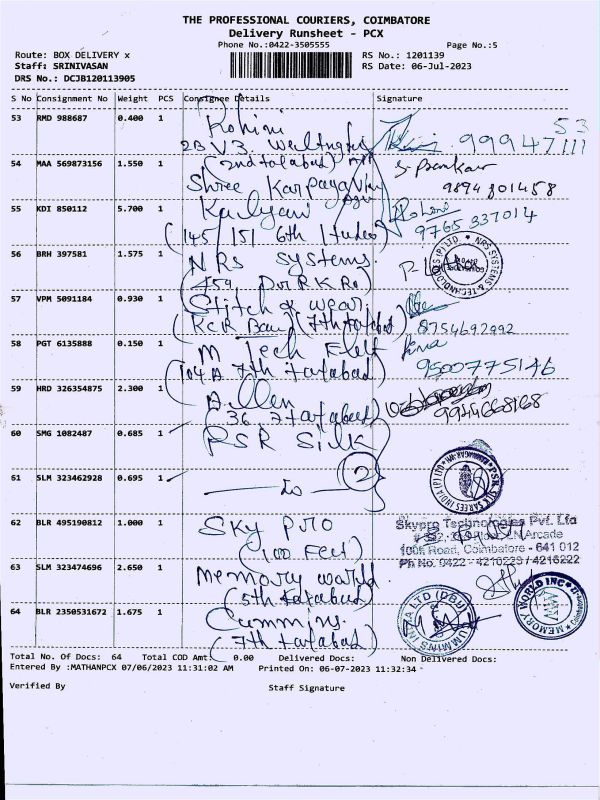 THE PROFESSIONAL COURIERS, COIMBATORE
Delivery Runsheet - PCX
Phone No.:0422-3505555
Page No.:5
Route: BOX DELIVERY x
RS No.: 1201139
Staff: SRINIVASAN
RS Date: 06-Jul-2023
DRS No.: DCJB120113905
S No Consignment No Weight PCS Consignee Details Signature
53 RMD 988687 0.400 1 Rohini
2B V3
53
99947111
54 MAA 569873156 1.550 1 (2nd tatabad)
Shree Karpaga
9894801458
55 KDI 850112 5.700 1 Kalyani
(145/151 6th
9765337014
56 BRH 397581 1.575 1 NRS Systems
(459, Dr R K Rd)
NRS SYSTEMS & TECHNOLOGIES (P) LTD.
57 VPM 5091184 0.930 1 Stitch & wear
(KCR 7th tatabad)
8754692992
58 PGT 6135888 0.150 1 M Tech
(104 A 7th tatabad)
9500775146
59 HRD 326354875 2.300 1 Allen
(36, 7 tatabad)
9944668168
60 SMG 1082487 0.685 1 PSR Silk
61 SLM 323462928 0.695 1 — do — (2)
PSR SILK SAREES INDIA (P) LTD
62 BLR 495190812 1.000 1 Sky Pro
(100 Feet)
Skypro Technologies Pvt. Ltd
Arcade
100ft Road, Coimbatore - 641 012
Ph No. 0422 - 4210223 / 4216222
63 SLM 323474696 2.650 1 Memory world
(5th tatabad)
MEMORY WORLD INC
64 BLR 2350531672 1.675 1 Cummins
(7th tatabad)
Total No. Of Docs: 64 Total COD Amt: 0.00 Delivered Docs: Non Delivered Docs:
Entered By :MATHANPCX 07/06/2023 11:31:02 AM Printed On: 06-07-2023 11:32:34
Verified By Staff Signature